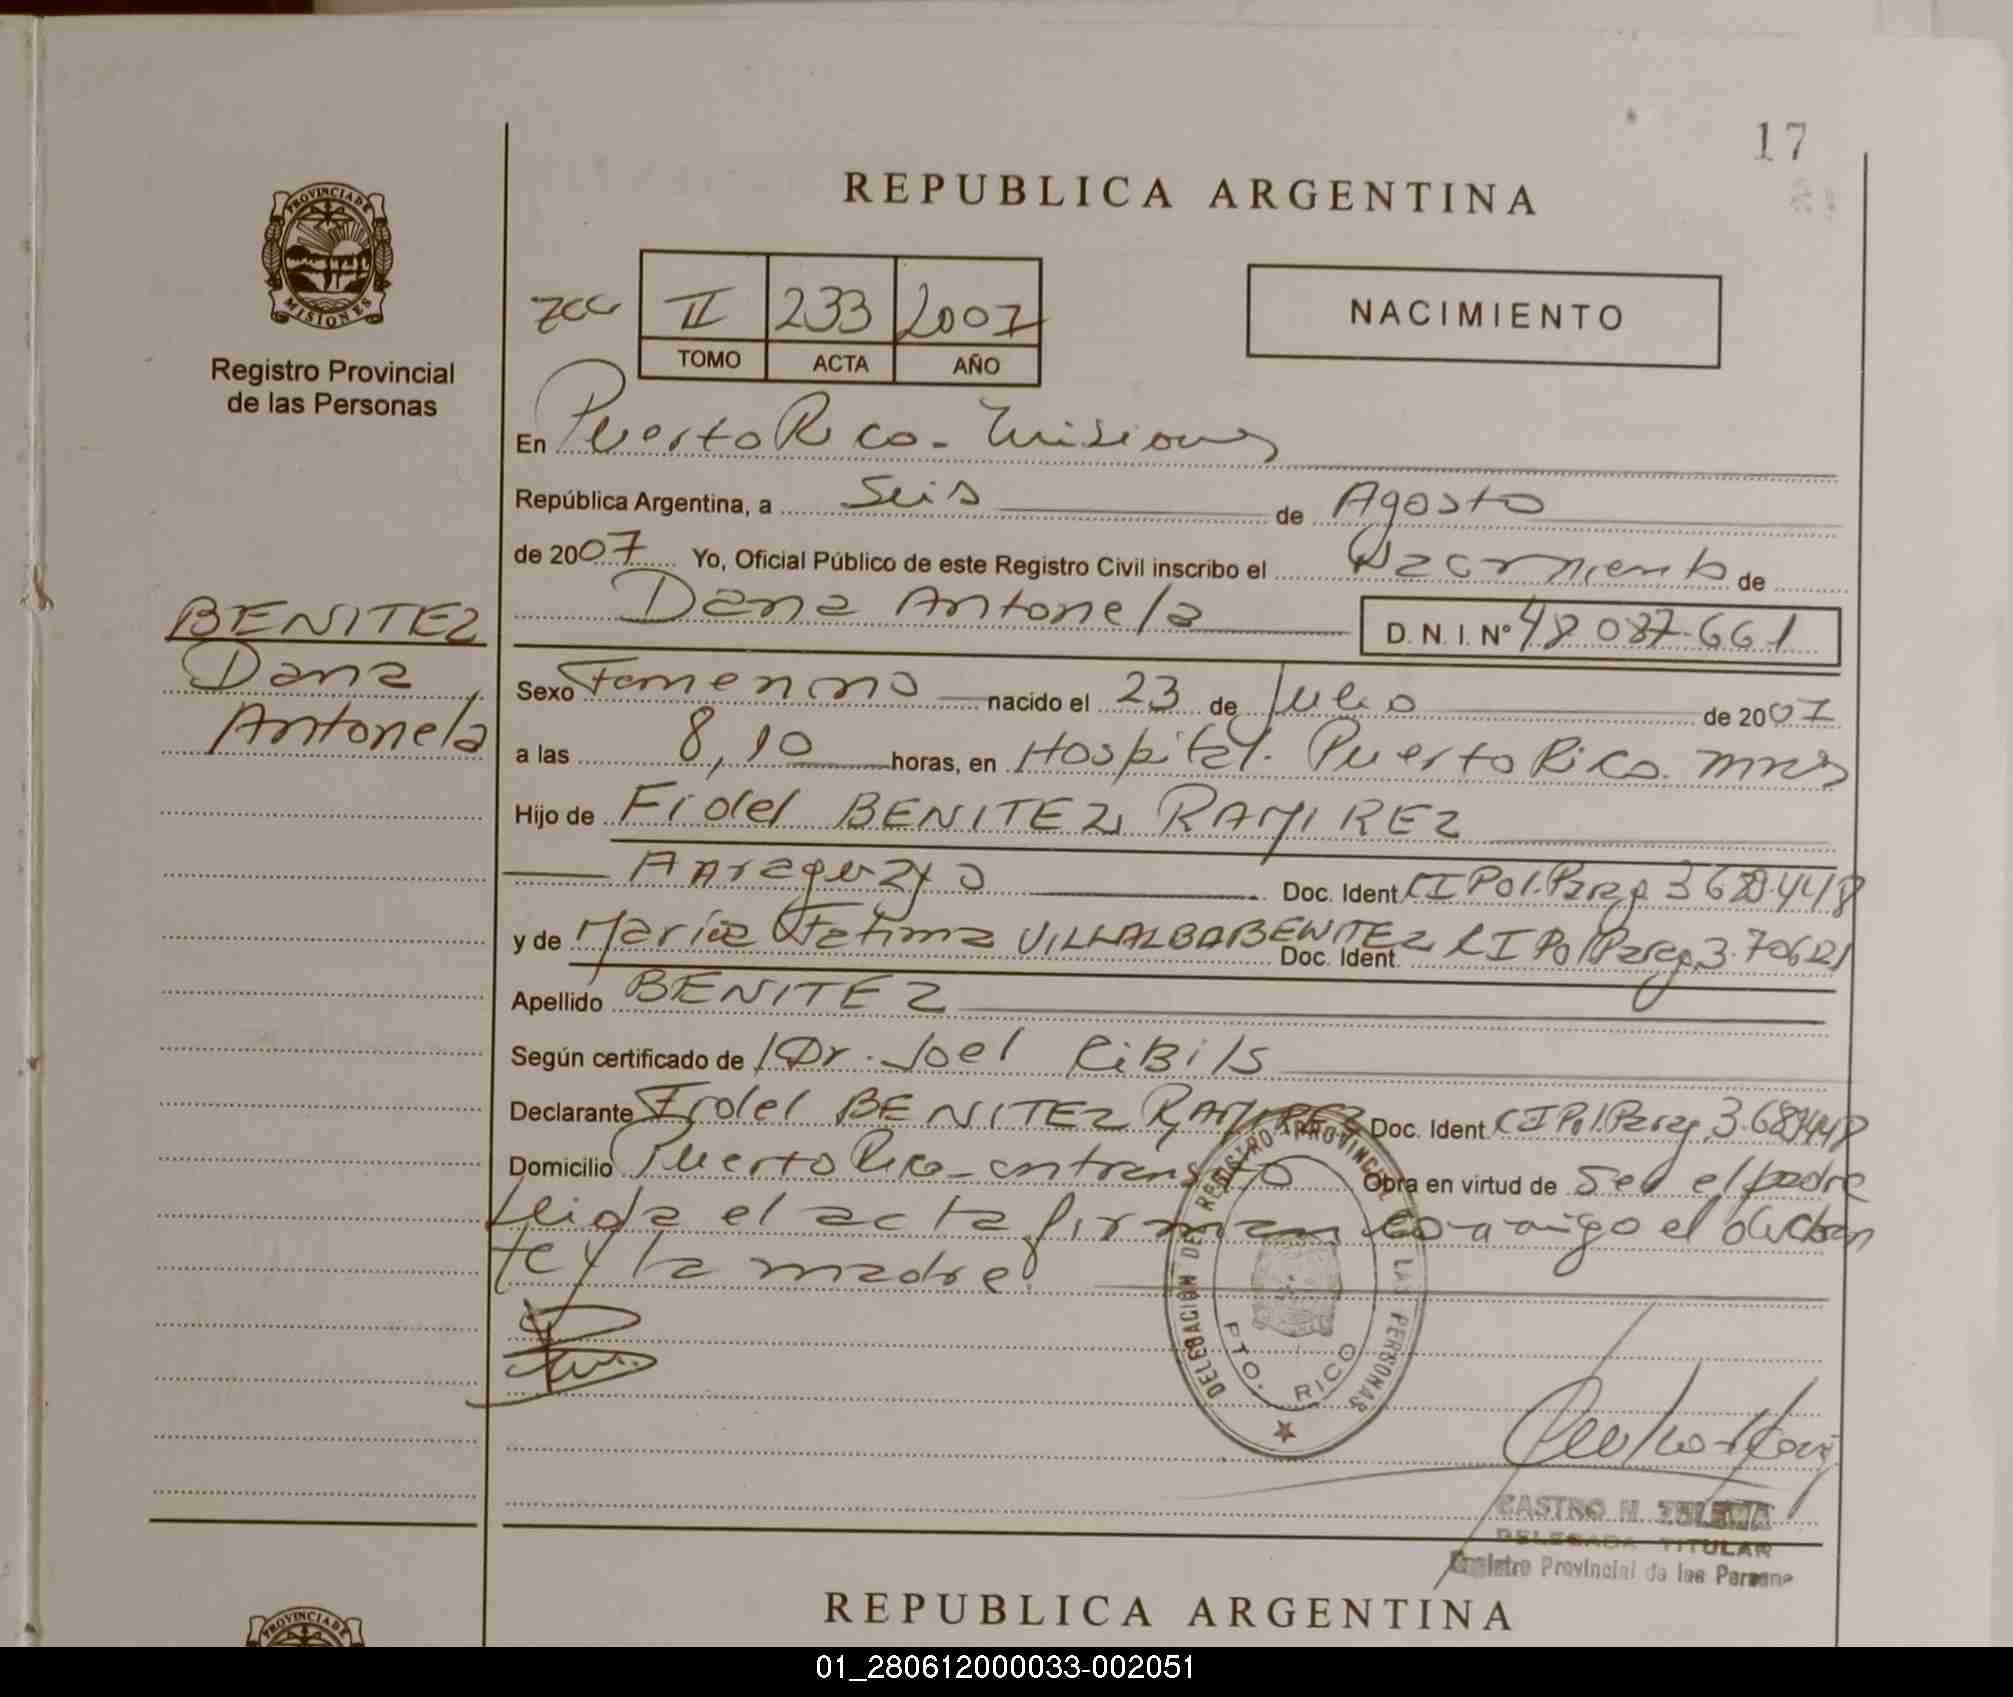 17
REPUBLICA ARGENTINA
PROVINCIA DE
MISIONES
Registro Provincial
de las Personas
II 233 2007
TOMO ACTA AÑO
NACIMIENTO
En Puerto Rico - Misiones
República Argentina, a Seis de Agosto
de 2007 Yo, Oficial Público de este Registro Civil inscribo el Nacimiento de
Dana Antonela D. N. I. Nº 48.087.661
BENITEZ
Dana
Antonela
Sexo Femenino nacido el 23 de Julio de 2007
a las 8,10 horas, en Hospital. Puerto Rico. Mnes
Hijo de Fidel BENITEZ RAMIREZ
Paraguayo Doc. Ident. CI Pol. Parag
y de María Fatima VILLALBA BENITEZ Doc. Ident. CI Pol Parag
Apellido BENITEZ
Según certificado de Dr. Joel RiBils
Declarante Fidel BENITEZ RAMIREZ Doc. Ident. CI Pol. Parag
Domicilio Puerto Rico - en transito Obra en virtud de Ser el padre
Leida el acta firman conmigo el declaran
te y la madre.
DELEGACIÓN DEL REGISTRO PROVINCIAL DE LAS PERSONAS
PTO. RICO
CASTRO N. ZULEMA
DELEGADA TITULAR
Registro Provincial de las Persona
REPUBLICA ARGENTINA
PROVINCIA DE
01_280612000033-002051